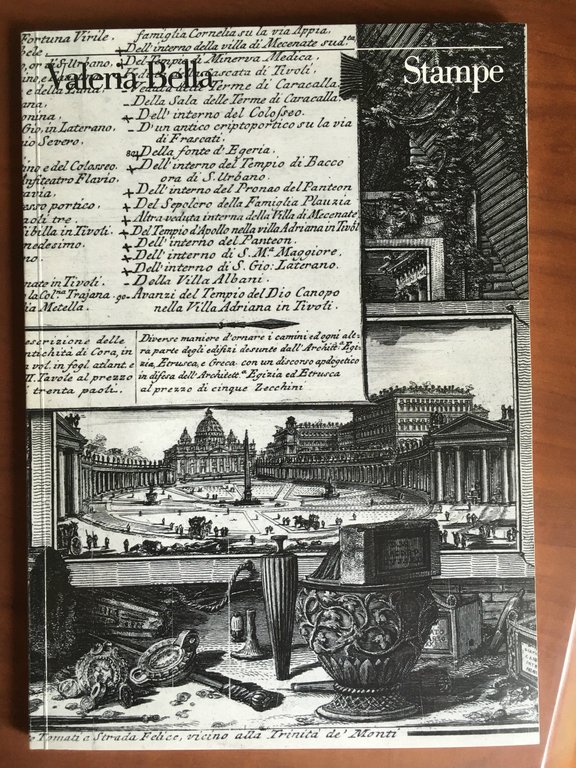 Valeria Bella
Stampe
Fortuna Virile,
or di S. Urbano,
e della Luna.
onina,
Gio, in Laterano,
io Severo.
ino e del Colosseo.
Anfiteatro Flavio.
avia,
asso portico.
aoli tre.
Sibilla in Tivoli.
medesimo.
no.
nate in Tivoli.
la Col.na Trajana.
lia Metella.
famiglia Cornelia su la via Appia,
Dell'interno della villa di Mecenate sud.ta
Del Tempio di Minerva Medica,
cascata di Tivoli.
Terme di Caracalla
Della Sala delle Terme di Caracalla.
Dell' interno del Colosseo.
D'un antico criptoportico su la via
di Frascati.
80 Della fonte d'Egeria.
Dell'interno del Tempio di Bacco
ora di S. Urbano.
Dell'interno del Pronao del Panteon
Del Sepolcro della Famiglia Plauzia
Altra veduta interna della Villa di Mecenate
Del Tempio d'Apollo nella villa Adriana in Tivoli
Dell'interno del Panteon.
Dell'interno di S. M.a Maggiore,
Dell'interno di S. Gio: Laterano.
Della Villa Albani.
90 Avanzi del Tempio del Dio Canopo
nella Villa Adriana in Tivoli.
escrizione delle
ntichità di Cora, in
vol. in fogl. atlant. e
Tavole al prezzo
trenta paoli.
Diverse maniere d'ornare i camini ed ogni alt-
ra parte degli edifizi desunte dall'Archit.a Egi-
zia, Etrusca, e Greca con un discorso apologetico
in difesa dell'Archite.a Egizia ed Etrusca
al prezzo di cinque Zecchini
Tomati a Strada Felice, vicino alla Trinità de' Monti